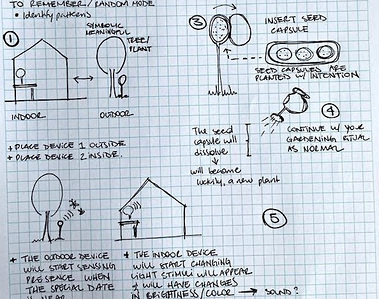 TO REMEMBER / RANDOM MODE
• Identify patterns
1
SYMBOLIC
MEANINGFUL
TREE/
PLANT
INDOOR
OUTDOOR
+ PLACE DEVICE 1 OUTSIDE
+ PLACE DEVICE 2 INSIDE.
3
INSERT SEED
CAPSULE
SEED CAPSULES ARE
PLANTED WITH INTENTION
4
The seed
capsule will
dissolve
↓
will become
luckily, a new plant
CONTINUE W/ YOUR
GARDENING RITUAL
AS NORMAL
5
+ THE OUTDOOR DEVICE
WILL START SENSING
PRESENCE WHEN
THE SPECIAL DATE
+ THE INDOOR DEVICE
WILL START CHANGING
LIGHT STIMULI WILL APPEAR
WILL HAVE CHANGES
IN BRIGHTNESS/COLOR → SOUND?